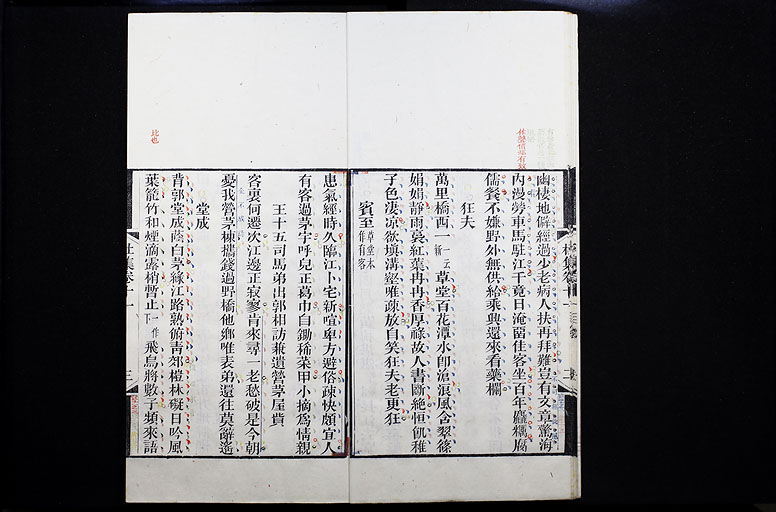 幽棲地僻經過少老病人扶再拜難豈有文章驚海
內漫勞車馬駐江干竟日淹留佳客坐百年麤糲腐
儒餐不嫌野外無供給乘興還來看藥欄
狂夫
萬里橋西一一云新草堂百花潭水即滄浪風含翠篠
娟娟靜雨裛紅蕖冉冉香厚祿故人書斷絕恒飢稚
子色淒涼欲塡溝壑唯疎放自笑狂夫老更狂
賓至草堂本作有客
患氣經時久臨江卜宅新喧卑方避俗疎快頗宜人
有客過茅宇呼兒正葛巾自鋤稀菜甲小摘爲情親
王十五司馬弟出郭相訪兼遺營茅屋貲
客裏何遷次江邊正寂寥肯來尋一老愁破是今朝
憂我營茅棟攜錢過野橋他鄉唯表弟還往莫辭遙
堂成
背郭堂成蔭白茅緣江路熟俯青郊榿林礙日吟風
葉籠竹和煙滴露梢暫止一作下飛烏將數子頻來語
比也
杜集卷十一
三